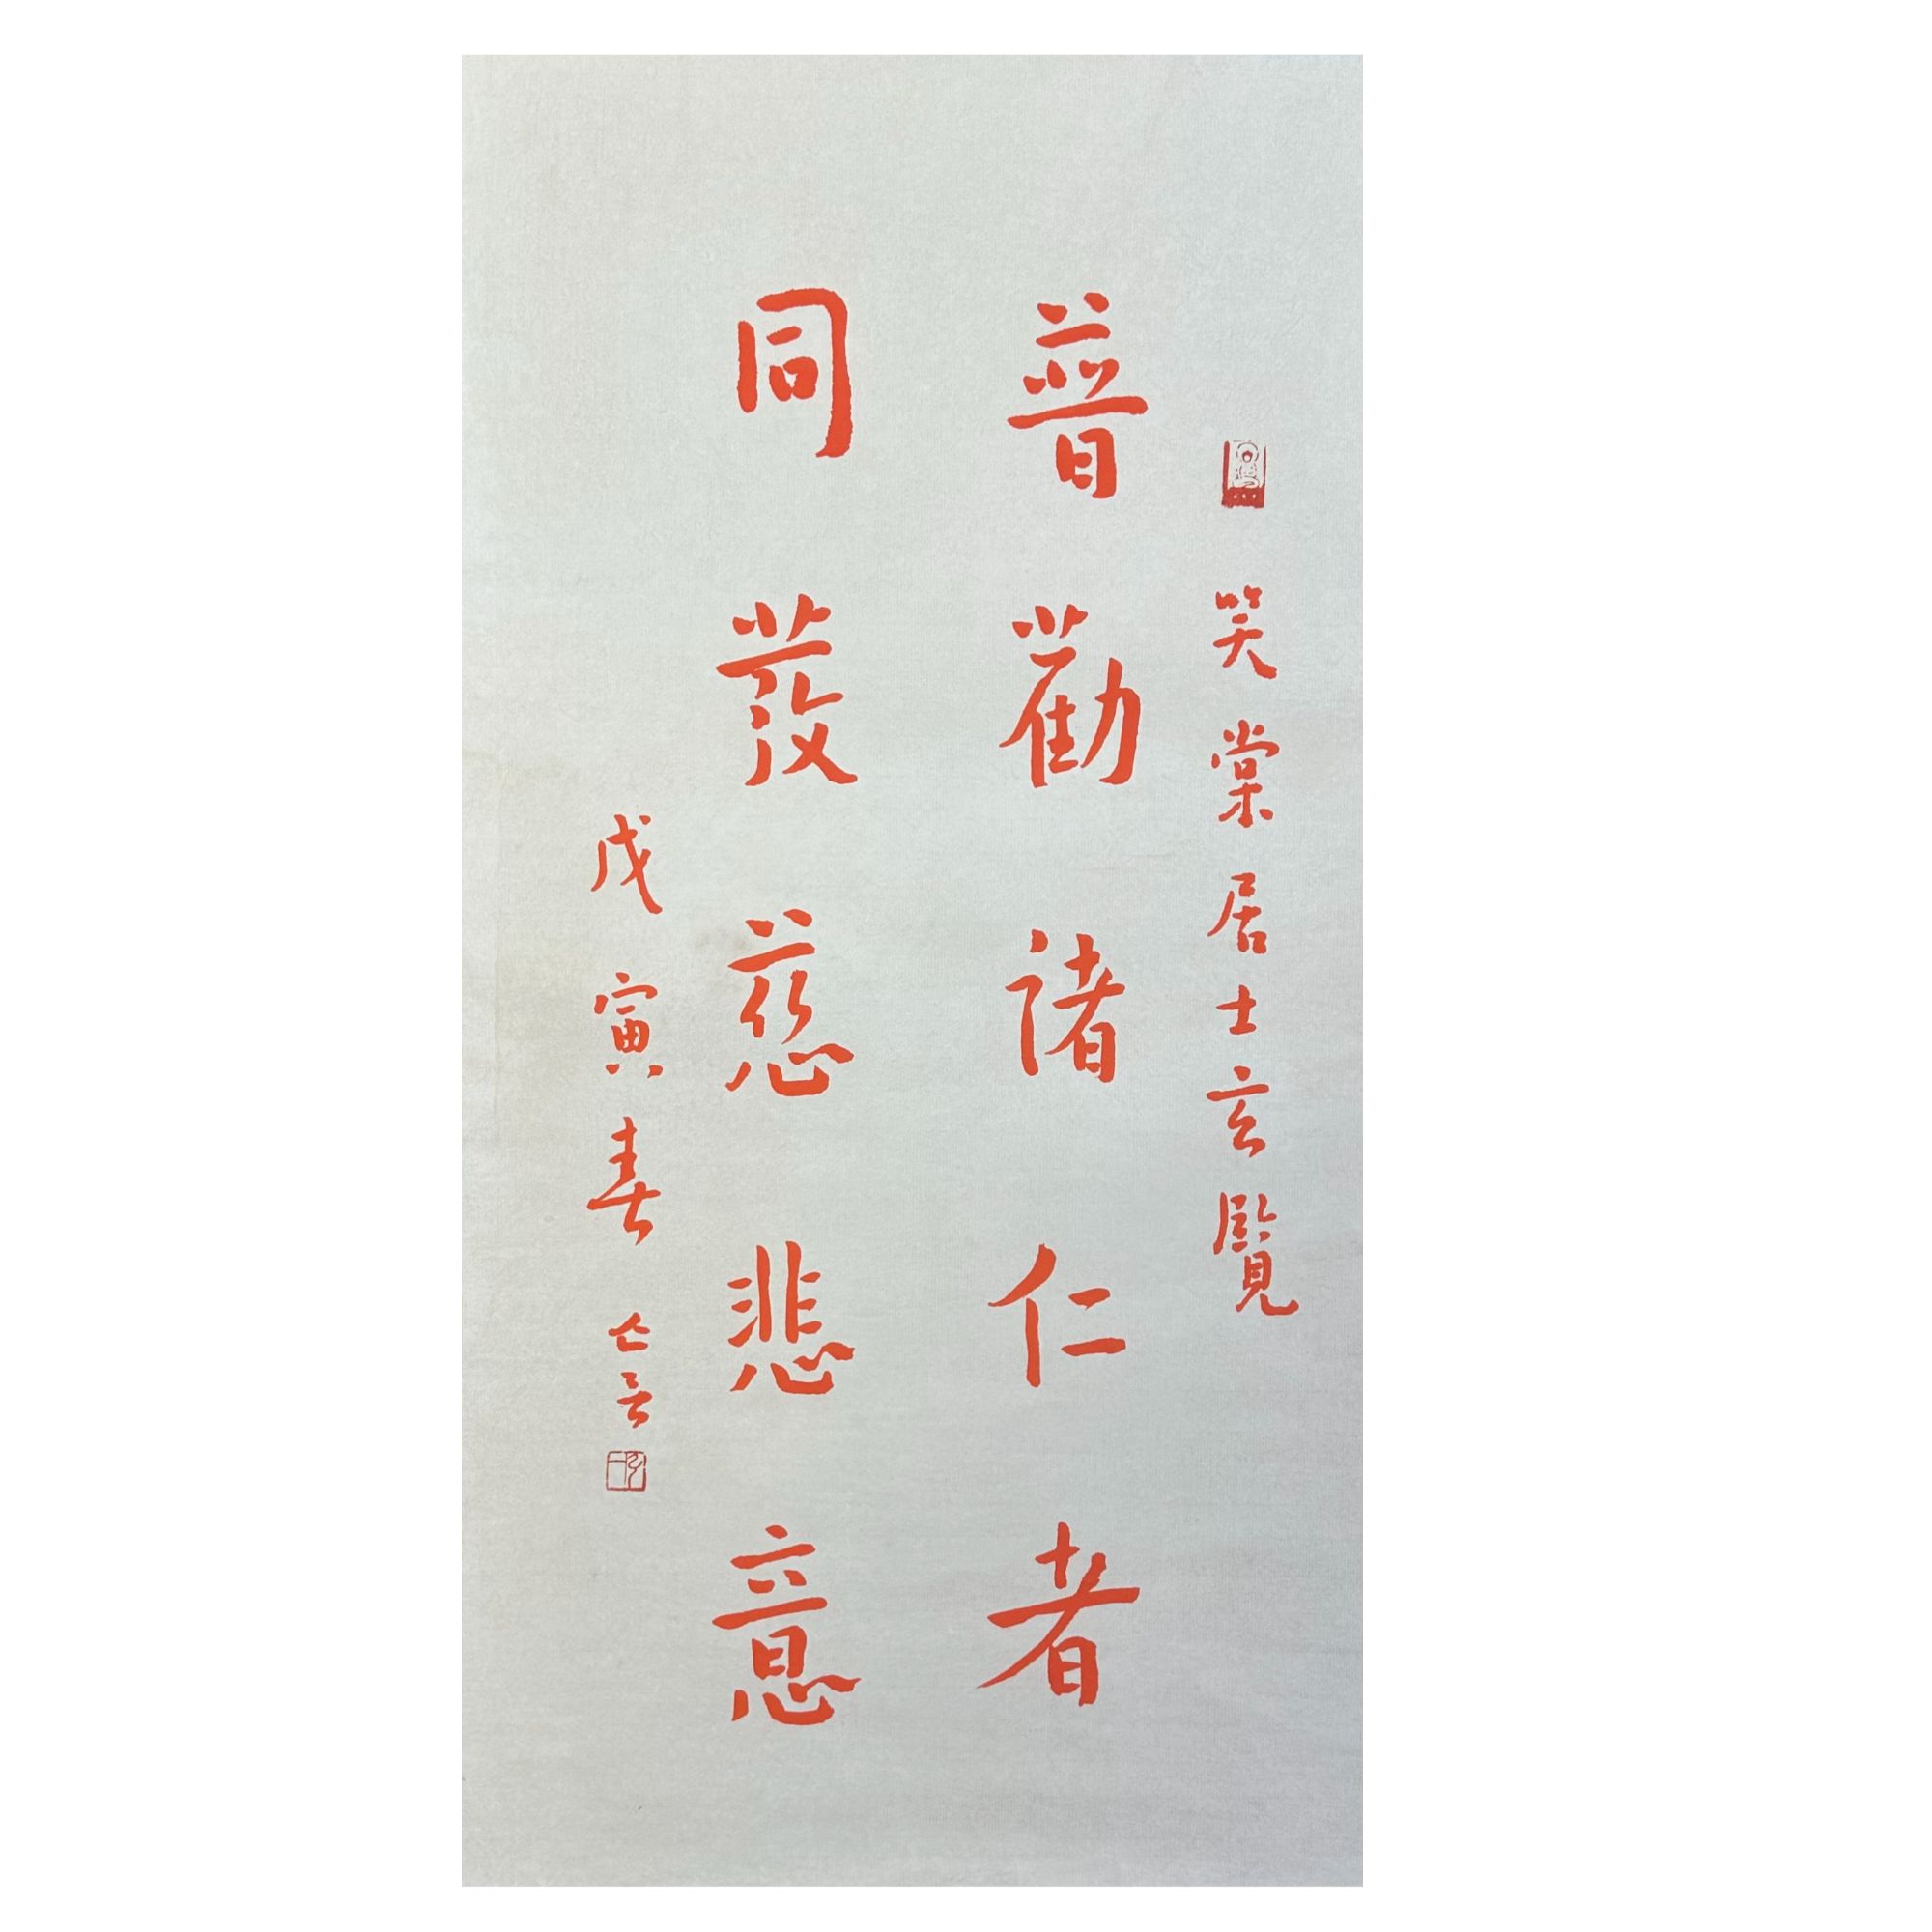 笑棠居士玄覽
普勸諸仁者
同發慈悲意
戊寅春亾言